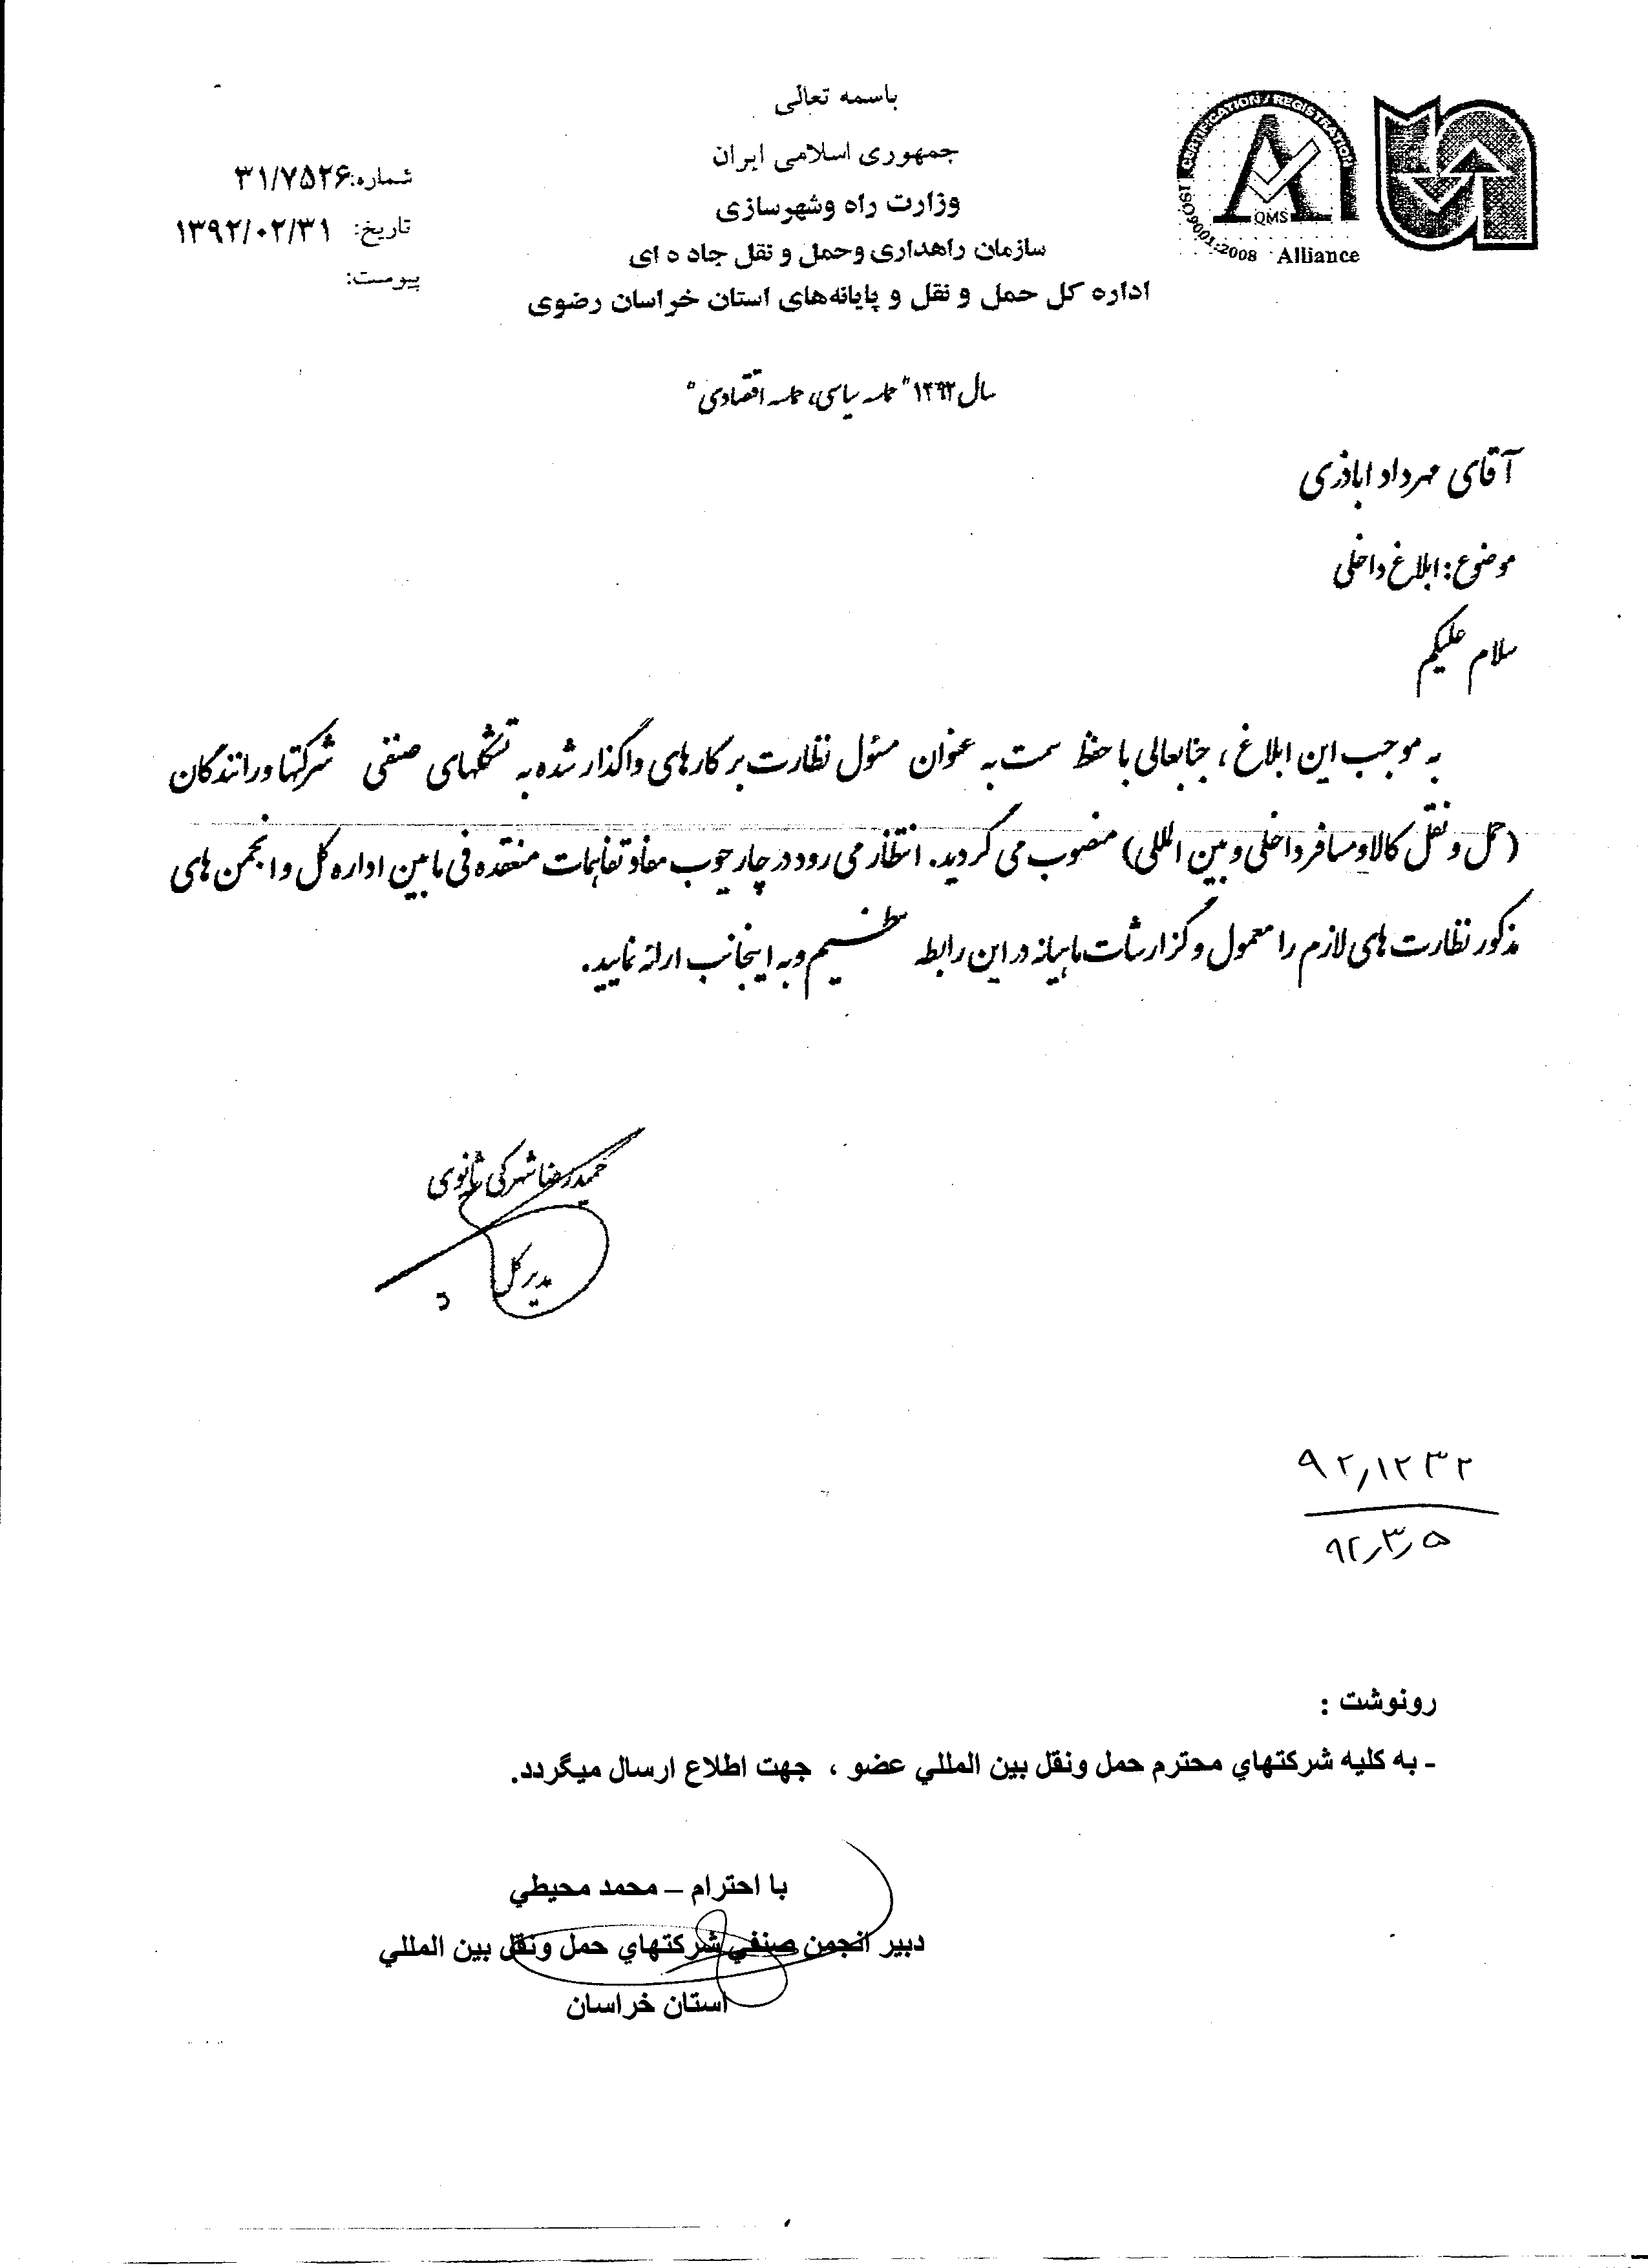 باسمه تعالی
جمهوری اسلامی ایران
وزارت راه وشهرسازی
سازمان راهداری وحمل و نقل جاده ای
اداره کل حمل و نقل و پایانه‌های استان خراسان رضوی
شماره: ۳۱/۷۵۲۶
تاریخ: ۱۳۹۲/۰۲/۳۱
پیوست:
CERTIFICATION / REGISTRATION
ISO9001:2008
QMS
Alliance
سال ۱۳۹۲ "حماسه سیاسی، حماسه اقتصادی"
آقای مهرداد اباذری
موضوع: ابلاغ داخلی
سلام علیکم
به موجب این ابلاغ، جنابعالی با حفظ سمت به عنوان مسئول نظارت بر کارهای واگذار شده به تشکلهای صنفی شرکتها و رانندگان
(حمل و نقل کالا و مسافر داخلی و بین المللی) منصوب می گردید. انتظار می رود در چارچوب مفاد تفاهمات منعقده فی مابین اداره کل و انجمن های
مذکور نظارت های لازم را معمول و گزارشات ماهیانه در این رابطه تنظیم و به اینجانب ارائه نمایید.
حمیدرضا شهرکی ثانوی
مدیر کل
۹۲,۱۲۳۲
۹۲,۳,۵
رونوشت :
ـ به کلیه شرکتهاي محترم حمل ونقل بین المللي عضو ، جهت اطلاع ارسال میگردد.
با احترام – محمد محیطي
دبیر انجمن صنفي شرکتهاي حمل ونقل بین المللي
استان خراسان